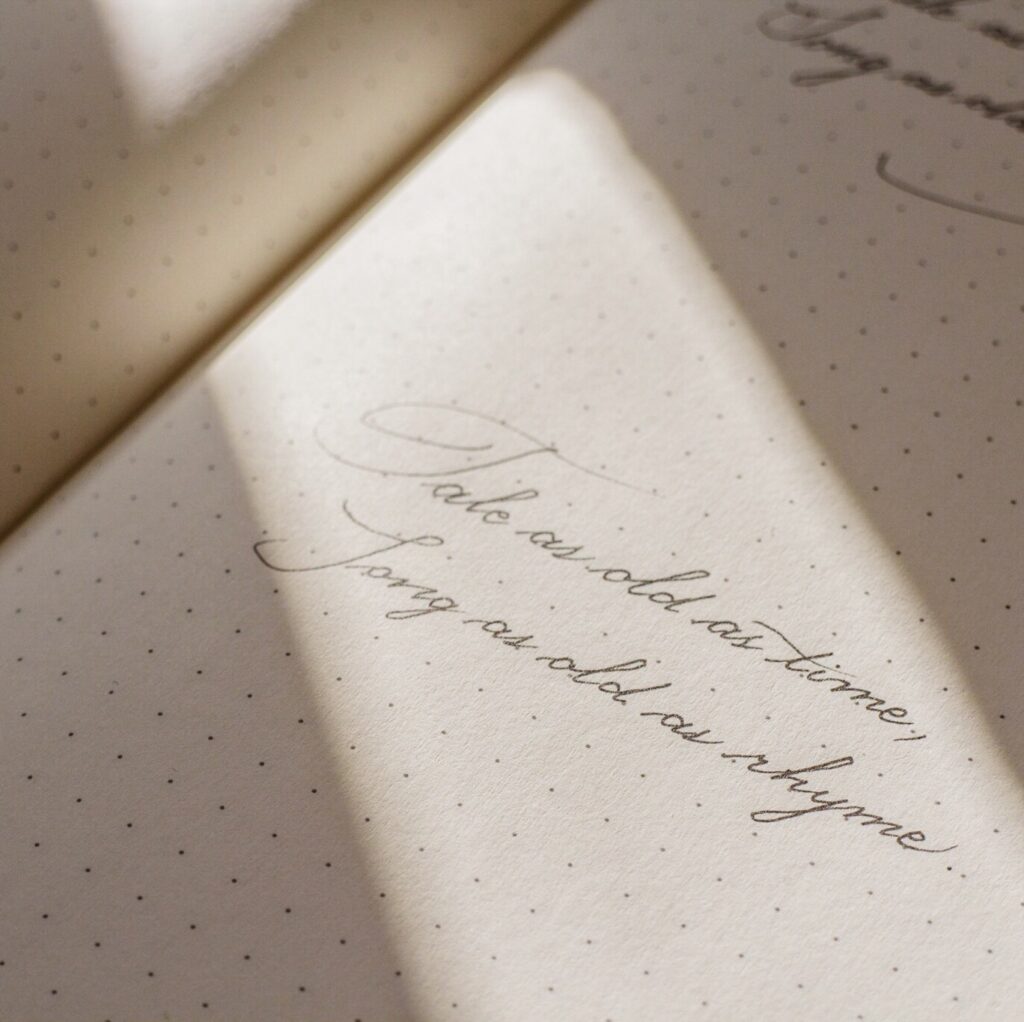 Song as old
Tale as old as time,
Song as old as rhyme